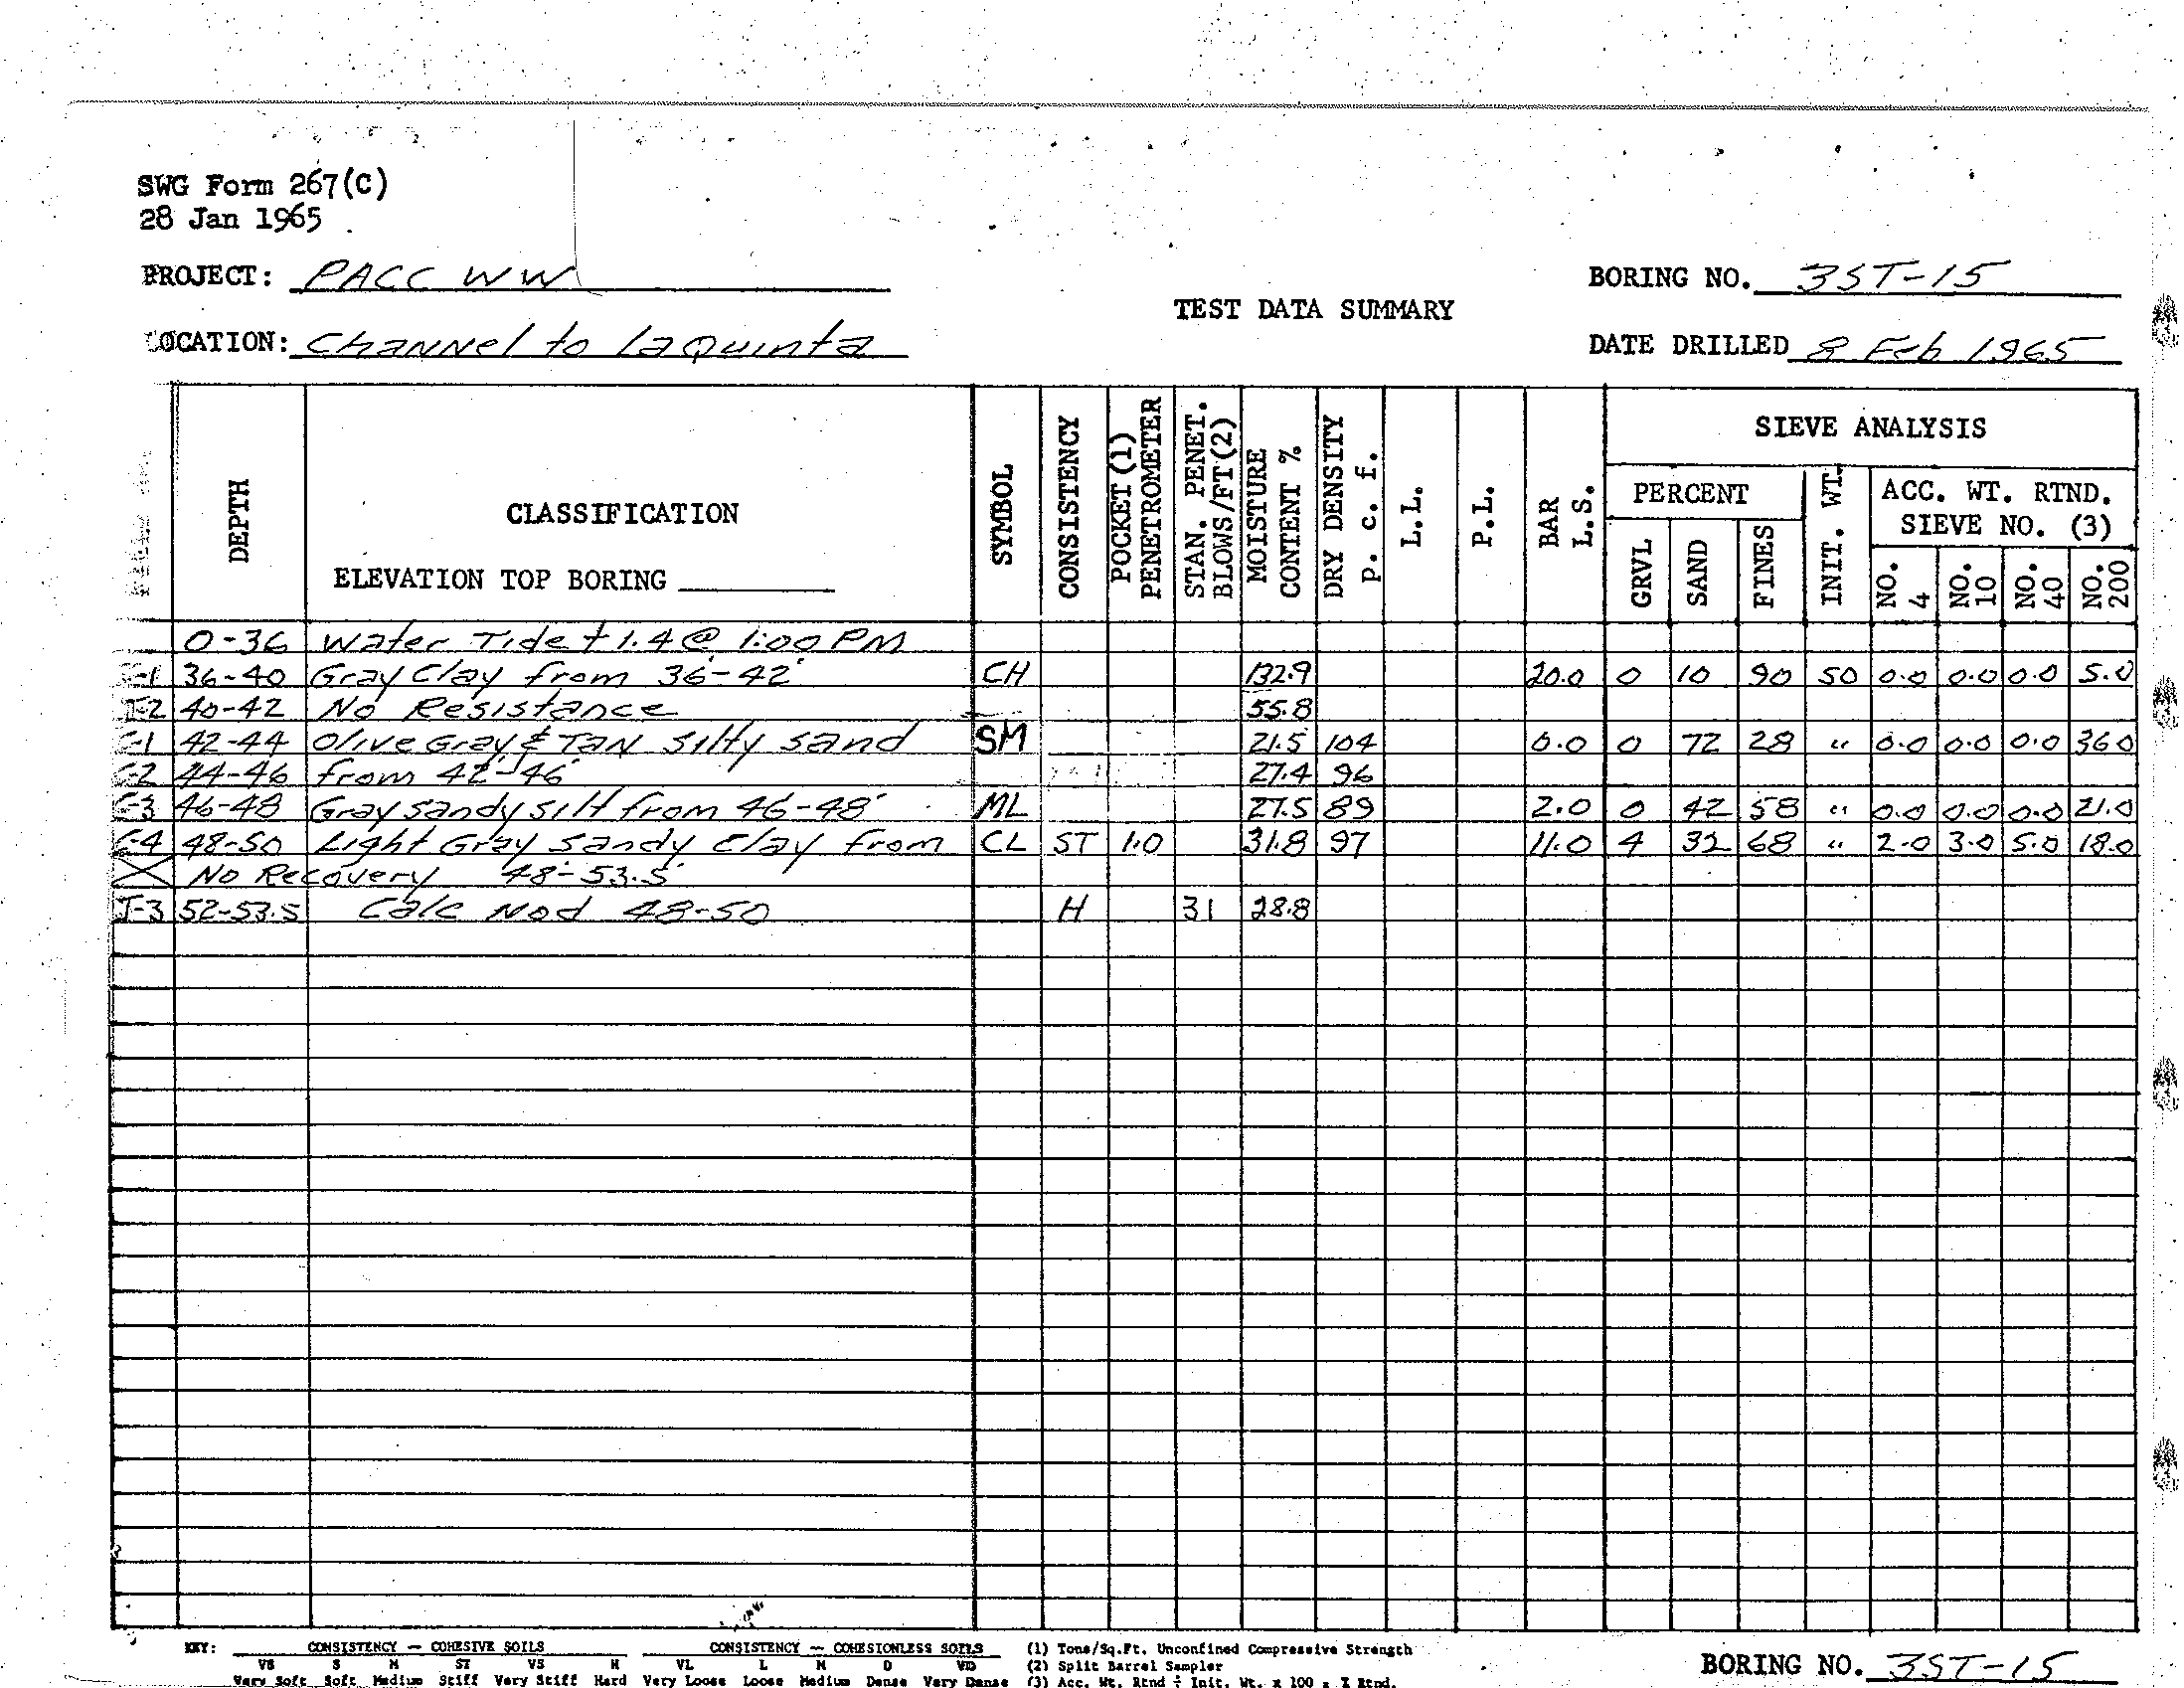 SWG Form 267(C)
28 Jan 1965
PROJECT: PACC WW
BORING NO. 3ST-15
TEST DATA SUMMARY
LOCATION: Channel to LaQuinta
DATE DRILLED 8 Feb 1965
DEPTH
CLASSIFICATION
ELEVATION TOP BORING
SYMBOL
CONSISTENCY
POCKET (1) PENETROMETER
STAN. PENET. BLOWS/FT(2)
MOISTURE CONTENT %
DRY DENSITY p. c. f.
L.L.
P.L.
BAR L.S.
SIEVE ANALYSIS
PERCENT
GRVL
SAND
FINES
INIT. WT.
ACC. WT. RTND. SIEVE NO. (3)
NO. 4
NO. 10
NO. 40
NO. 200
0-36 Water Tide + 1.4 @ 1:00 PM
36-40 Gray Clay from 36'-42' CH 132.9 20.0 0 10 90 50 0.0 0.0 0.0 5.0
40-42 No Resistance 55.8
42-44 Olive Gray & Tan Silty sand SM 21.5 104 0.0 0 72 28 " 0.0 0.0 0.0 36.0
44-46 from 42'-46' 27.4 96
46-48 Gray sandy silt from 46-48' ML 27.5 89 2.0 0 42 58 " 0.0 0.0 0.0 21.0
C-4 48-50 Light Gray Sandy Clay from CL ST 1.0 31.8 97 11.0 4 32 68 " 2.0 3.0 5.0 18.0
No Recovery 48'-53.5'
J-3 52-53.5 Calc Nod 48-50 H 31 28.8
KEY: CONSISTENCY — COHESIVE SOILS CONSISTENCY — COHESIONLESS SOILS (1) Tons/Sq.Ft. Unconfined Compressive Strength
VS S M ST VS H VL L M D VD (2) Split Barrel Sampler
Very Soft Soft Medium Stiff Very Stiff Hard Very Loose Loose Medium Dense Very Dense (3) Acc. Wt. Rtnd ÷ Init. Wt. x 100 = % Rtnd.
BORING NO. 3ST-15